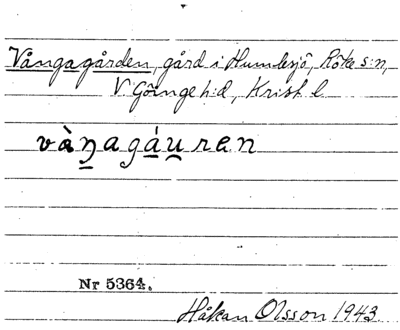 Vångagården, gård i Humlesjö, Röke s:n,
V Göinge h:d, Krist l
vàŋagáu̯ren
Nr 5364.
Håkan Olsson 1943